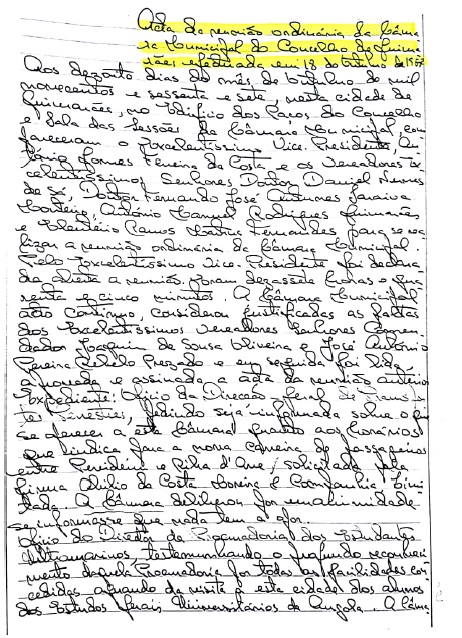 Acta da reunião ordinária da Câma
ra Municipal do Concelho de Guima
rães efectuada em 18 de outubro de 1967
Aos dezoito dias do mês de outubro de mil
novecentos e sessenta e sete, nesta cidade de
Guimarães, no Edifício dos Paços do Concelho
e Sala das Sessões da Câmara Municipal, com
pareceram o Excelentíssimo Vice-Presidente, An
tónio Gomes Ferreira da Costa e os Vereadores Ex
celentíssimos Senhores Doutor Daniel Nunes
de Sá, Doutor Fernando José Antunes Saraiva
Monteiro, António Rodrigues Guimarães
e Ramos Martins Fernandes para se rea
lizar a reunião ordinária da Câmara Municipal.
Pelo Excelentíssimo Vice-Presidente foi declara
da aberta a reunião. Foram dezassete horas e qua
renta e cinco minutos. A Câmara Municipal
acto contínuo, considerou justificadas as faltas
dos Excelentíssimos Vereadores Senhores Comen
dador Joaquim de Sousa Oliveira e José António
Pereira Rebelo Prezado e em seguida foi lida,
aprovada e assinada a acta da reunião anterior
Expediente: Ofício da Direcção Geral de Transpor
tes Terrestres, pedindo seja informada sobre o que
se oferecer a esta Câmara quanto aos horários
que indica para a nova carreira de passageiros
entre Pevidém e Riba d'Ave, solicitada pela
firma Abílio da Costa Moreira & Companhia Limi
tada. A Câmara deliberou por unanimidade
se informasse que nada tem a opor.
Ofício do Director da Procuradoria dos Estudantes
Ultramarinos, testemunhando o profundo reconheci
mento daquela Procuradoria por todas as facilidades con
cedidas aquando da visita a esta cidade dos alunos
dos Estudos Gerais Universitários de Angola. A Câma